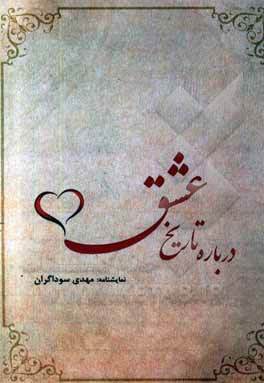 درباره تاریخ عشق
نمایشنامه: مهدی سوداگران